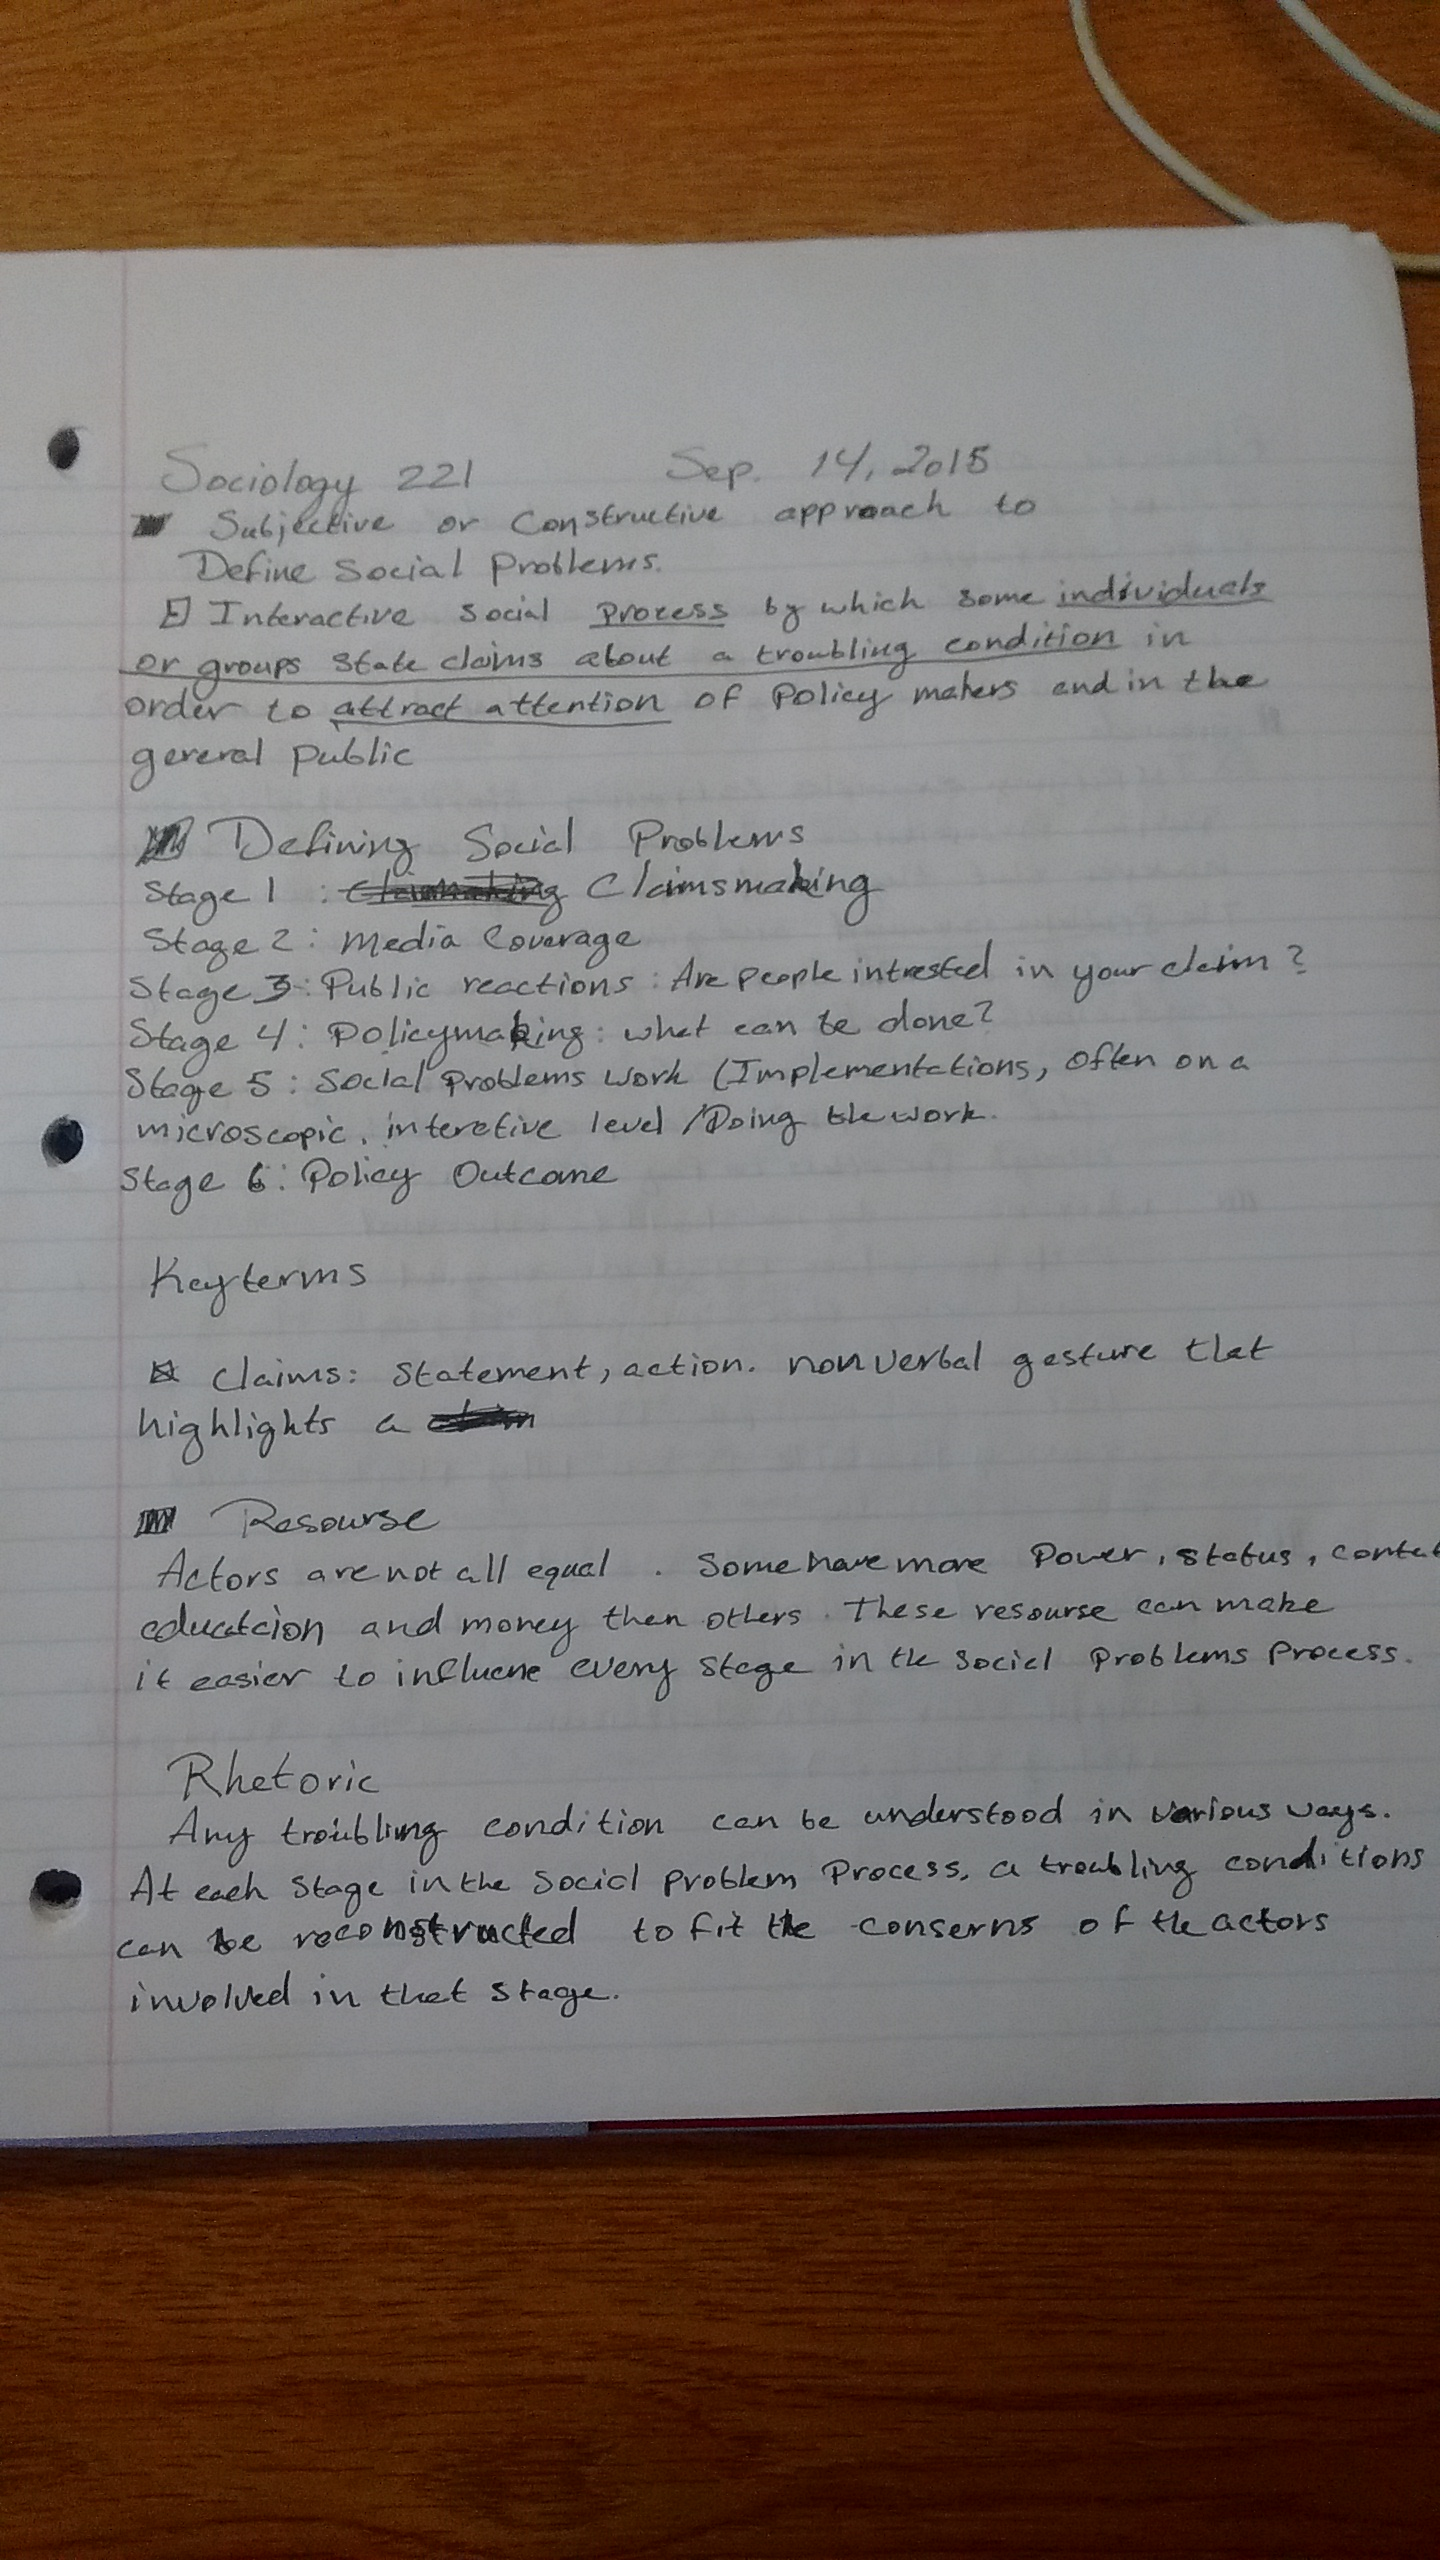 Sociology 221 Sep. 14, 2015
Subjective or Constructive approach to
Define Social Problems.
Interactive social process by which some individuals
or groups state claims about a troubling condition in
order to attract attention of policy makers and in the
general public
Defining Social Problems
Stage 1 : Claimsmaking
Stage 2 : Media Coverage
Stage 3 : Public reactions : Are people intrested in your claim ?
Stage 4 : Policymaking : what can be done?
Stage 5 : Social Problems work (Implementations, often on a
microscopic, interative level / Doing the work.
Stage 6 : Policy Outcome
Keyterms
Claims: Statement, action. nonverbal gesture that
highlights a
Resourse
Actors are not all equal . Some have more Power, status,
and money then others. These resourse can make
it easier to every stage in the Social Problems Process.
Rhetoric
Any troubling condition can be understood in various ways.
At each stage in the Social problem Process, a troubling conditions
can be reconstructed to fit the conserns of the actors
involved in that stage.